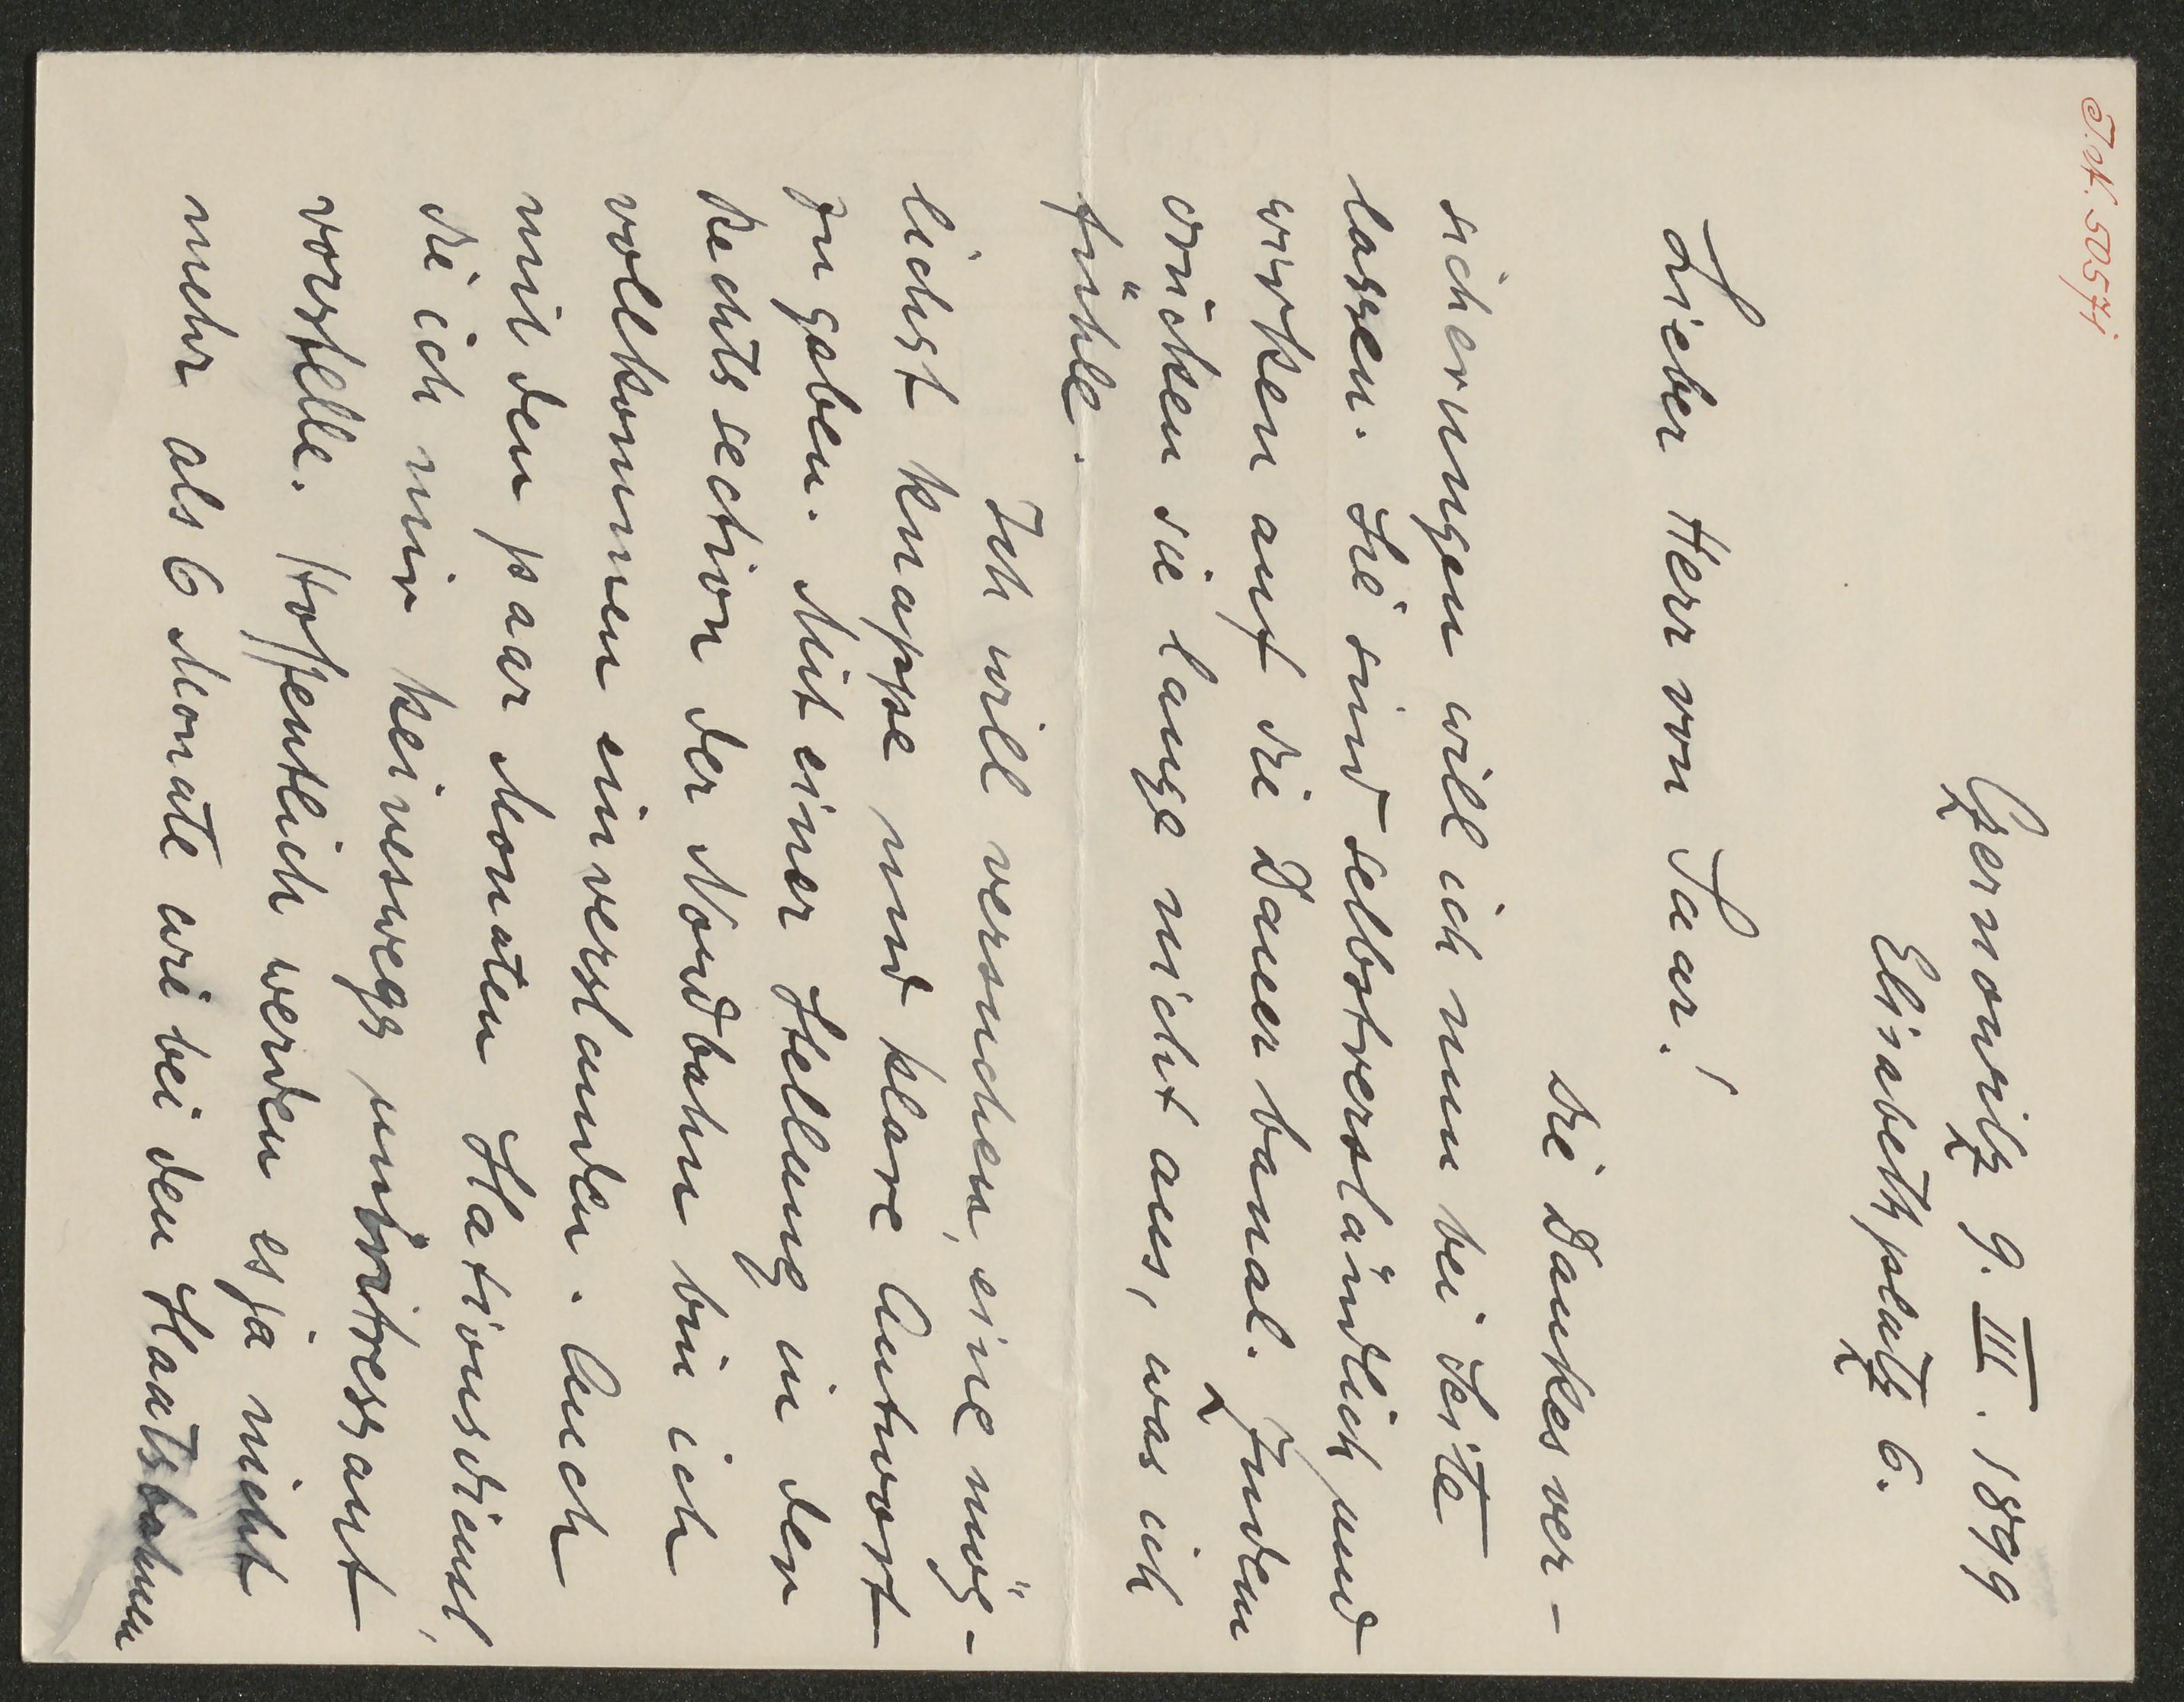 I.N. 50571
Czernowitz 9. III. 1899
Elisabethplatz 6.
Lieber Herr von Saar!
die Dankesver-
sicherungen will ich nun bei Seite
lassen. Sie sind selbstverständlich und
wirken auf die Dauer banal. Zudem
drücken sie lange nicht aus, was ich
fühle.
Ich will versuchen, eine mög-
lichst knappe und klare Antwort
zu geben. Mit einer Stellung in der
Rechtssection der Nordbahn bin ich
vollkommen einverstanden. Auch
mit den paar Monaten Stationsdienst,
die ich mir keineswegs uninteressant
vorstelle. Hoffentlich werden es ja nicht
mehr als 6 Monate wie bei den Staatsbahnen